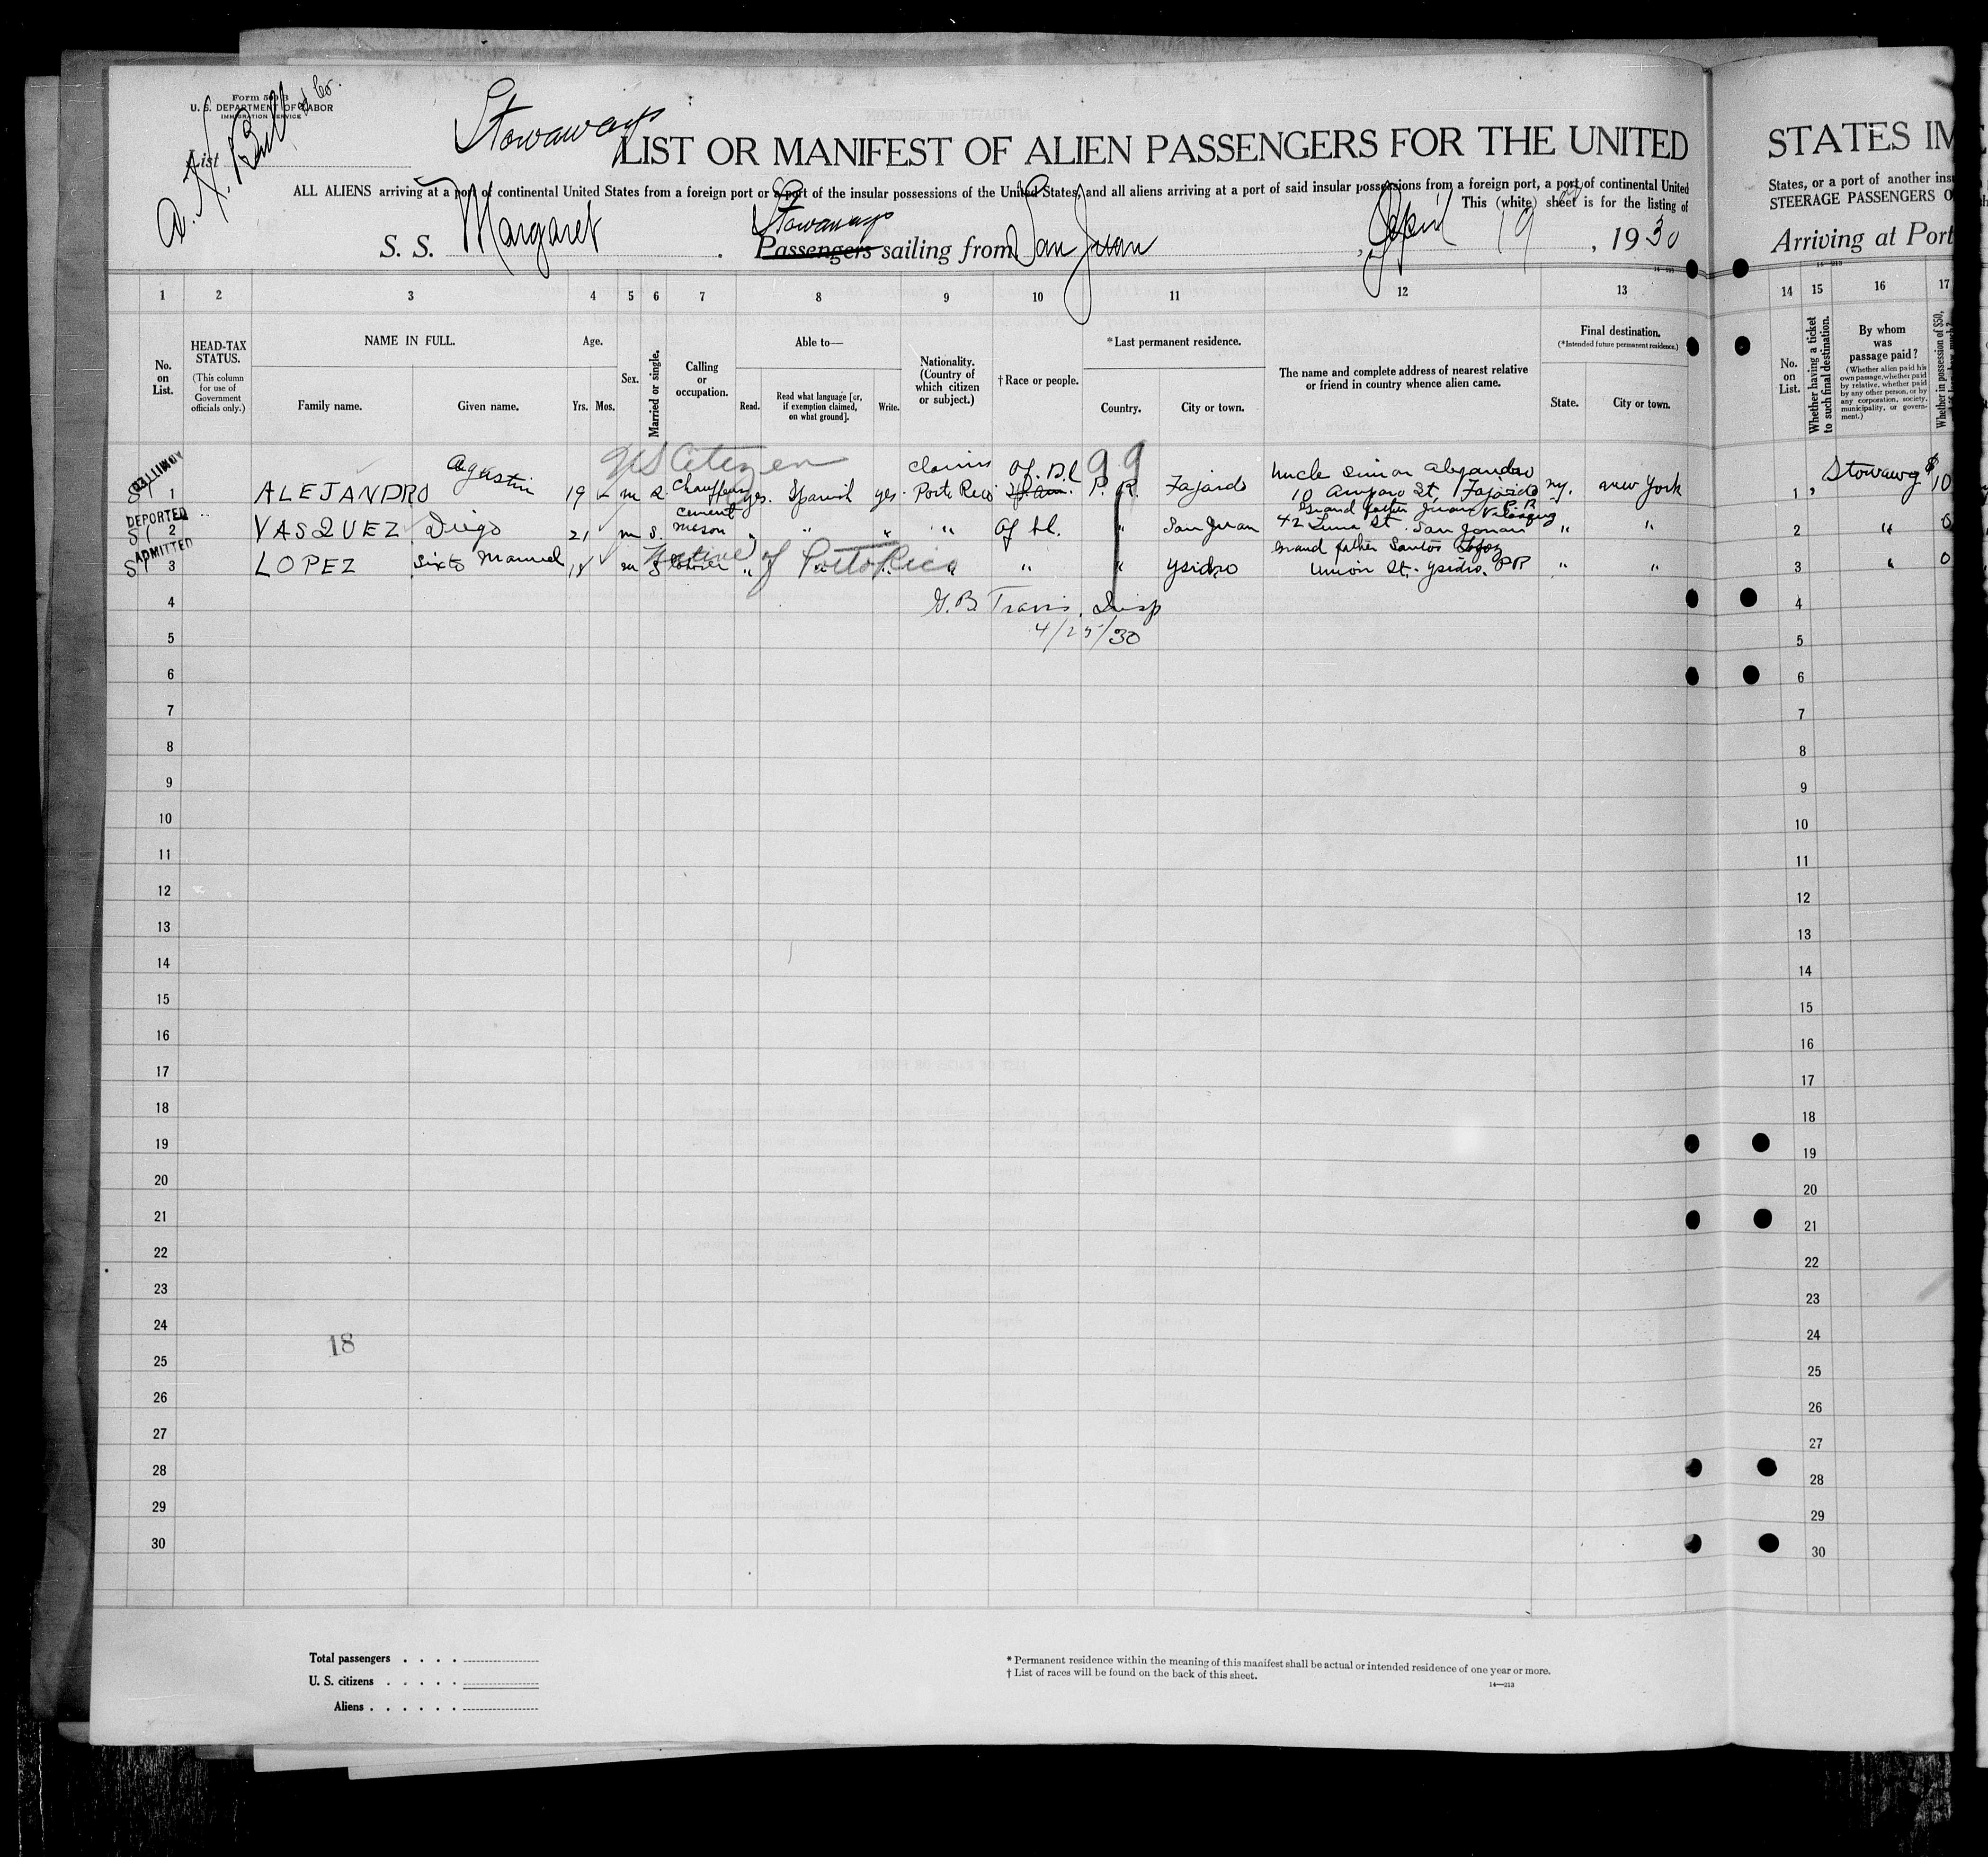 Form 500 B
U. S. DEPARTMENT OF LABOR
IMMIGRATION SERVICE
List
A. H. Bull & Co.
Stowaways
LIST OR MANIFEST OF ALIEN PASSENGERS FOR THE UNITED
ALL ALIENS arriving at a port of continental United States from a foreign port or a port of the insular possessions of the United States, and all aliens arriving at a port of said insular possessions from a foreign port, a port of continental United
This (white) sheet is for the listing of
Stowaways
S. S. Margaret . Passengers sailing from San Juan , April 19 , 1930
1 2 3 4 5 6 7 8 9 10 11 12 13
No. on List.
HEAD-TAX STATUS.
(This column for use of Government officials only.)
NAME IN FULL.
Family name. Given name.
Age.
Yrs. Mos.
Sex.
Married or single.
Calling or occupation.
Able to—
Read. Read what language [or, if exemption claimed, on what ground]. Write.
Nationality. (Country of which citizen or subject.)
† Race or people.
*Last permanent residence.
Country. City or town.
The name and complete address of nearest relative or friend in country whence alien came.
Final destination.
(*Intended future permanent residence.)
State. City or town.
US Citizen
ADMITTED
1 ALEJANDRO Agustin 19 m S. Chauffeur yes. Spanish yes. Claims Porto Rico Af. Bl P. R. Fajardo Uncle Simon Alejandro 10 Amparo St, Fajardo P.R. ny. new York
DEPORTED
2 VASQUEZ Diego 21 m s. cement mason " " " " Af bl. " San Juan Grand father Juan Velasquez 42 Luna St. San Jonan " "
ADMITTED
3 LOPEZ Sixto Manuel 18 m S " " " " " " Ysidro Grand father Santos Lopez Union St. Ysidro. PR " "
Native of Porto Rico
99
4 G. B. Travis, Insp
5 4/25/30
6
7
8
9
10
11
12
13
14
15
16
17
18
19
20
21
22
23
24
18
25
26
27
28
29
30
Total passengers
U. S. citizens
Aliens
* Permanent residence within the meaning of this manifest shall be actual or intended residence of one year or more.
† List of races will be found on the back of this sheet.
14—213
STATES IM
States, or a port of another ins
STEERAGE PASSENGERS O
Arriving at Port
14—213
14 15 16 17
No. on List.
Whether having a ticket to such final destination.
By whom was passage paid?
(Whether alien paid his own passage, whether paid by relative, whether paid by any other person, or by any corporation, society, municipality, or government.)
Whether in possession of $50,
1 Stowawy $10
2 " 0
3 " 0
4
5
6
7
8
9
10
11
12
13
14
15
16
17
18
19
20
21
22
23
24
25
26
27
28
29
30